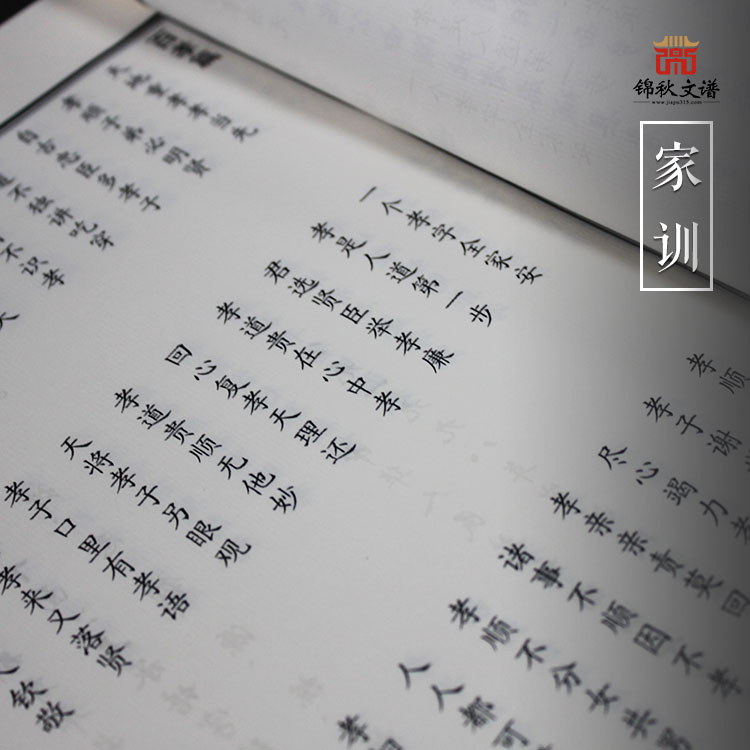 锦秋文谱
www.jiapu315.com
家训
百孝篇
天地重孝孝当先
一个孝字全家安
孝顺
孝顺子弟必明贤
孝是人道第一步
孝子谢
自古忠臣多孝子
君选贤臣举孝廉
尽心竭力
是不独讲吃穿
孝道贵在心中孝
孝亲亲责莫回
不识孝
回心复孝天理还
诸事不顺因不孝
孝道贵顺无他妙
孝顺不分女共
天将孝子另眼观
人人都可
孝子口里有孝语
孝
孝来又落贤
人钦敬